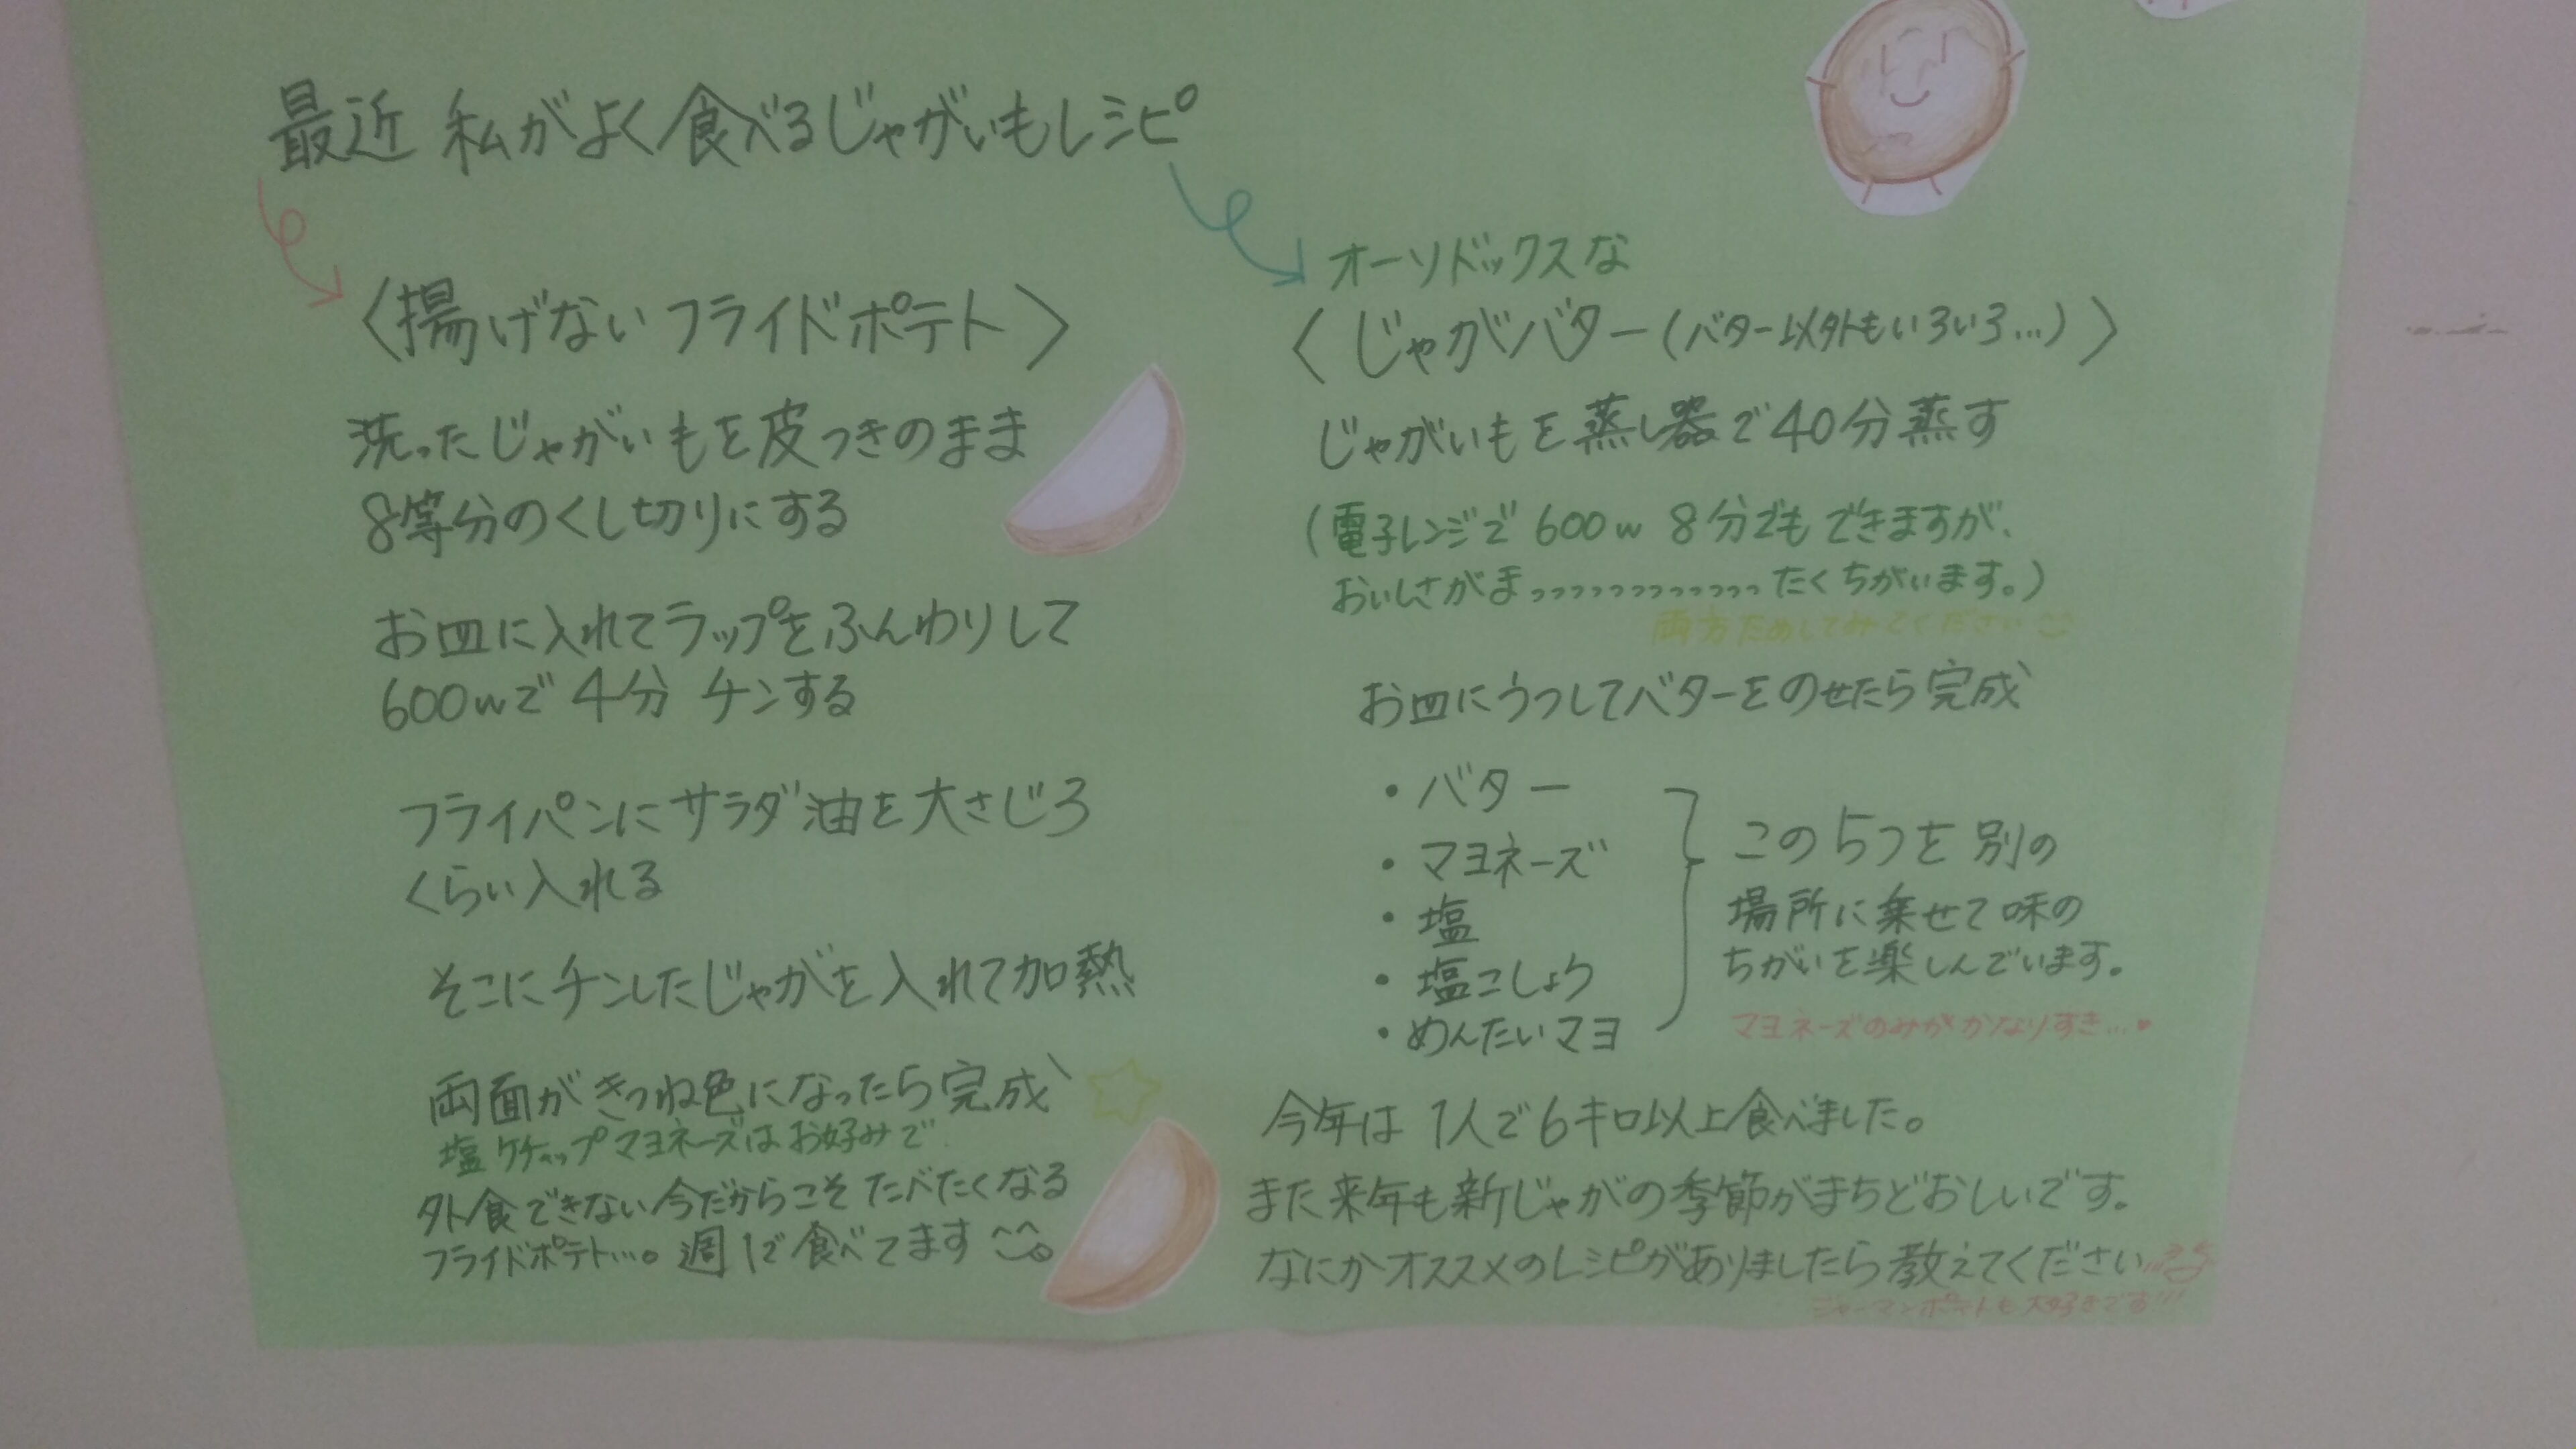 最近 私がよく食べるじゃがいもレシピ
〈揚げないフライドポテト〉
洗ったじゃがいもを皮つきのまま
8等分のくし切りにする
お皿に入れてラップをふんわりして
600wで4分 チンする
フライパンにサラダ油を大さじ3
くらい入れる
そこにチンしたじゃがを入れて加熱
両面がきつね色になったら完成
塩ケチャップマヨネーズはお好みで
外食できない今だからこそたべたくなる
フライドポテト…。週1で食べてます
オーソドックスな
〈じゃがバター(バター以外もいろいろ…)〉
じゃがいもを蒸し器で40分蒸す
(電子レンジで 600w 8分でもできますが、
おいしさがまっっっっっっっっっっっったくちがいます。)
両方ためしてみてください
お皿にうつしてバターをのせたら完成
・バター
・マヨネーズ
・塩
・塩こしょう
・めんたいマヨ
この5つを別の
場所に乗せて味の
ちがいを楽しんでいます。
マヨネーズのみがかなりすき…♥
今年は1人で6キロ以上食べました。
また来年も新じゃがの季節がまちどおしいです。
なにかオススメのレシピがありましたら教えてください
ジャーマンポテトも大好きです!!!